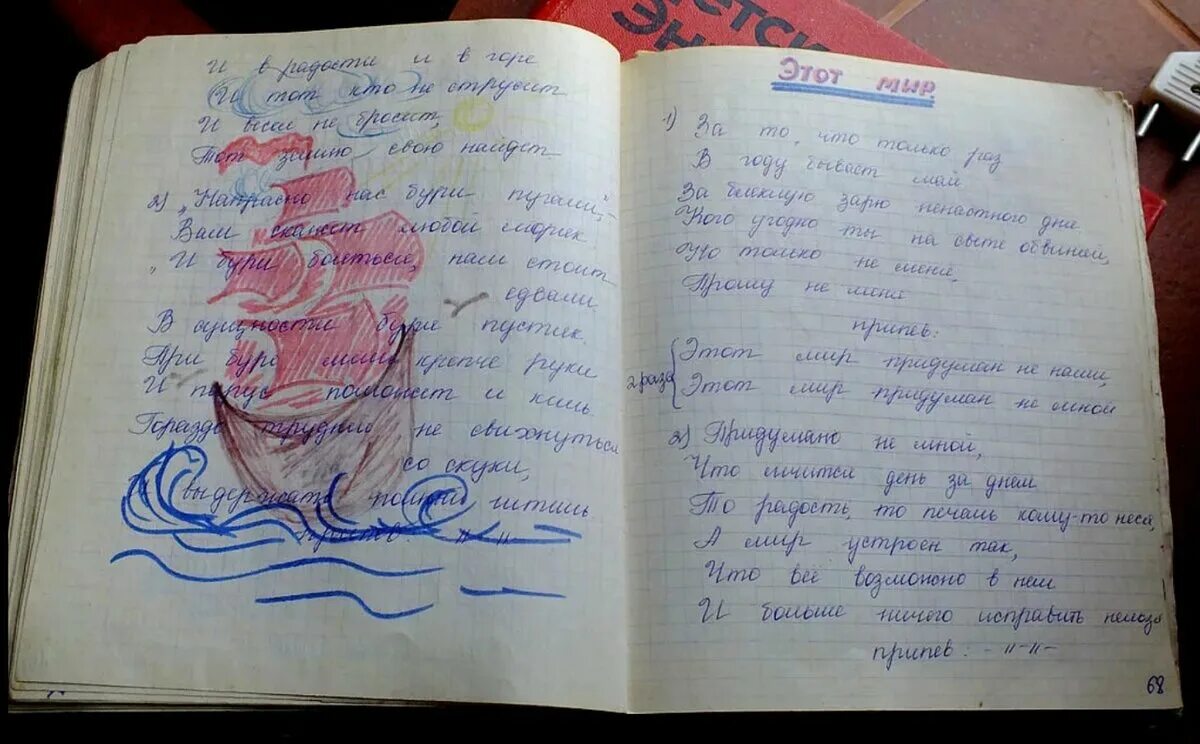 И в радости и в горе
И тот кто не струсит
И весел не бросит,
Тот землю свою найдет
2) „Напрасно нас бури пугали,"-
Вам скажет любой моряк
„И бури бояться, вам стоит
едвали.
В сущности буря пустяк.
При буре лишь крепче руки
И парус поможет и киль.
Гораздо трудней не свихнуться
со скуки,
И выдержать полный штиль
Припев: -"-"-
Этот мир.
1) За то, что только раз
В году бывает май
За блеклую зарю ненастного дня.
Кого угодно ты на свете обвиняй,
Но только не меня,
Прошу не меня
припев:
2 раза Этот мир придуман не нами,
Этот мир придуман не мной
2) Придумано не мной,
Что мчится день за днем
То радость, то печаль кому-то неся,
А мир устроен так,
Что всё возможно в нем
И больше ничего исправить нельзя
припев: -"-"-
68
ЭН